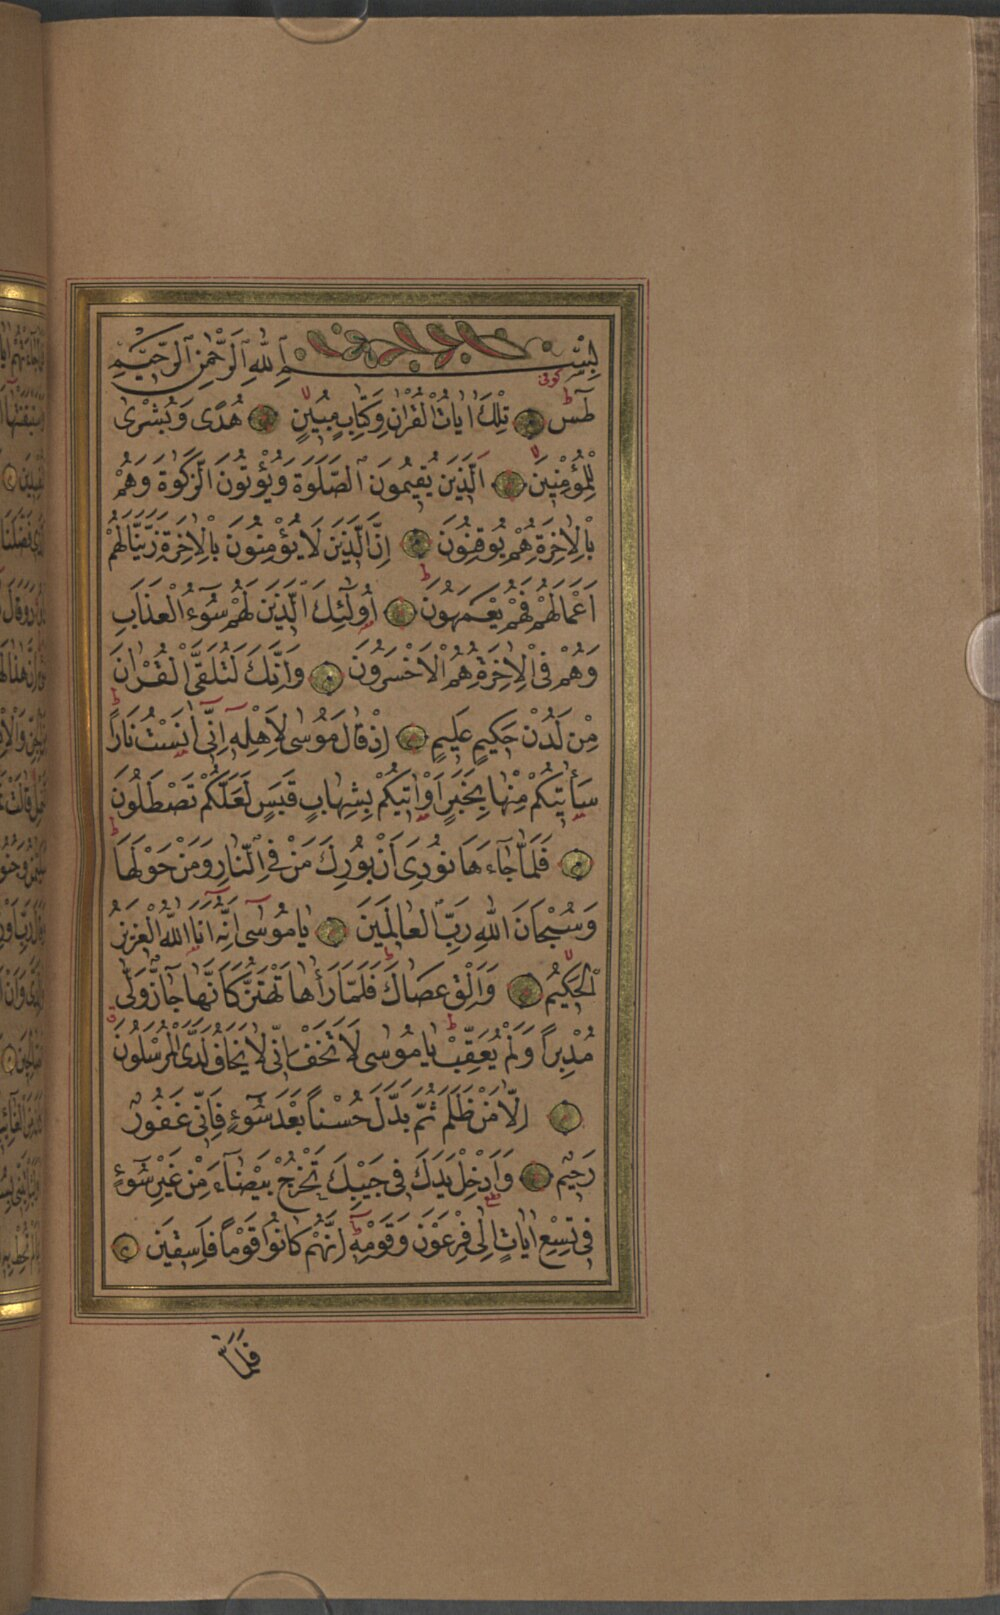 بِسْمِ اللّٰهِ الرَّحْمٰنِ الرَّحٖيمِ
كوفى
طٰسٓ تِلْكَ اٰيَاتُ الْقُرْاٰنِ وَكِتَابٍ مُبٖينٍ هُدًى وَبُشْرٰى
لِلْمُؤْمِنٖينَ اَلَّذٖينَ يُقٖيمُونَ الصَّلٰوةَ وَيُؤْتُونَ الزَّكٰوةَ وَهُمْ
بِالْاٰخِرَةِ هُمْ يُوقِنُونَ اِنَّ الَّذٖينَ لَا يُؤْمِنُونَ بِالْاٰخِرَةِ زَيَّنَّا لَهُمْ
اَعْمَالَهُمْ فَهُمْ يَعْمَهُونَ اُولٰٓئِكَ الَّذٖينَ لَهُمْ سُٓوءُ الْعَذَابِ
وَهُمْ فِى الْاٰخِرَةِ هُمُ الْاَخْسَرُونَ وَاِنَّكَ لَتُلَقَّى الْقُرْاٰنَ
مِنْ لَدُنْ حَكٖيمٍ عَلٖيمٍ اِذْ قَالَ مُوسٰى لِاَهْلِهٖٓ اِنّٖٓى اٰنَسْتُ نَارًا
سَاٰتٖيكُمْ مِنْهَا بِخَبَرٍ اَوْ اٰتٖيكُمْ بِشِهَابٍ قَبَسٍ لَعَلَّكُمْ تَصْطَلُونَ
فَلَمَّا جَٓاءَهَا نُودِىَ اَنْ بُورِكَ مَنْ فِى النَّارِ وَمَنْ حَوْلَهَا
وَسُبْحَانَ اللّٰهِ رَبِّ الْعَالَمٖينَ يَا مُوسٰٓى اِنَّهُٓ اَنَا اللّٰهُ الْعَزٖيزُ
الْحَكٖيمُ وَاَلْقِ عَصَاكَ فَلَمَّا رَاٰهَا تَهْتَزُّ كَاَنَّهَا جَٓانٌّ وَلّٰى
مُدْبِرًا وَلَمْ يُعَقِّبْ يَا مُوسٰى لَا تَخَفْ اِنّٖى لَا يَخَافُ لَدَىَّ الْمُرْسَلُونَ
اِلَّا مَنْ ظَلَمَ ثُمَّ بَدَّلَ حُسْنًا بَعْدَ سُٓوءٍ فَاِنّٖى غَفُورٌ
رَحٖيمٌ وَاَدْخِلْ يَدَكَ فٖى جَيْبِكَ تَخْرُجْ بَيْضَٓاءَ مِنْ غَيْرِ سُٓوءٍ
فٖى تِسْعِ اٰيَاتٍ اِلٰى فِرْعَوْنَ وَقَوْمِهٖٓ اِنَّهُمْ كَانُوا قَوْمًا فَاسِقٖينَ
فَلَمَّا